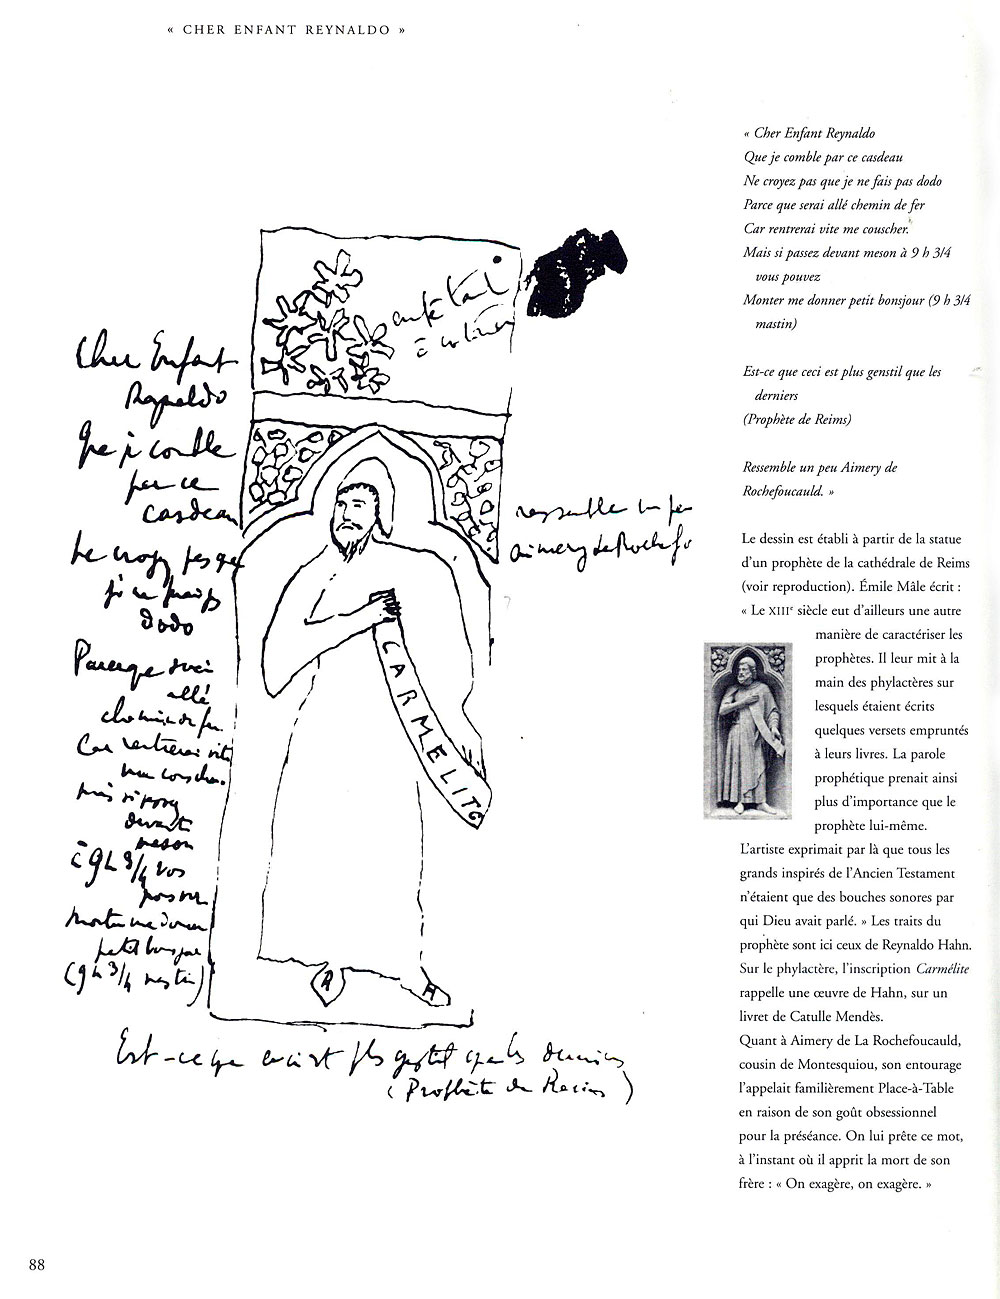 « CHER ENFANT REYNALDO »
Cher Enfant
Reynaldo
Que je comble
par ce
casdeau
Ne croyez pas que
je ne fais pas
dodo
Parceque serai
allé
chemin de fer
Car rentrerai vite
me couscher.
mais si passez
devant
meson
à 9 h 3/4 vos
pouvez
monter me donner
petit bonsjour
(9 h 3/4 mastin)
ressemble un peu
Aimery de Rochefo
CARMELITE
R H
Est-ce que ceci est plus genstil que les derniers
(Prophète de Reims)
« Cher Enfant Reynaldo
Que je comble par ce casdeau
Ne croyez pas que je ne fais pas dodo
Parce que serai allé chemin de fer
Car rentrerai vite me couscher.
Mais si passez devant meson à 9 h 3/4
vous pouvez
Monter me donner petit bonsjour (9 h 3/4
mastin)
Est-ce que ceci est plus genstil que les
derniers
(Prophète de Reims)
Ressemble un peu Aimery de
Rochefoucauld. »
Le dessin est établi à partir de la statue
d’un prophète de la cathédrale de Reims
(voir reproduction). Émile Mâle écrit :
« Le XIIIe siècle eut d’ailleurs une autre
manière de caractériser les
prophètes. Il leur mit à la
main des phylactères sur
lesquels étaient écrits
quelques versets empruntés
à leurs livres. La parole
prophétique prenait ainsi
plus d’importance que le
prophète lui-même.
L’artiste exprimait par là que tous les
grands inspirés de l’Ancien Testament
n’étaient que des bouches sonores par
qui Dieu avait parlé. » Les traits du
prophète sont ici ceux de Reynaldo Hahn.
Sur le phylactère, l’inscription Carmélite
rappelle une œuvre de Hahn, sur un
livret de Catulle Mendès.
Quant à Aimery de La Rochefoucauld,
cousin de Montesquiou, son entourage
l’appelait familièrement Place-à-Table
en raison de son goût obsessionnel
pour la préséance. On lui prête ce mot,
à l’instant où il apprit la mort de son
frère : « On exagère, on exagère. »
88